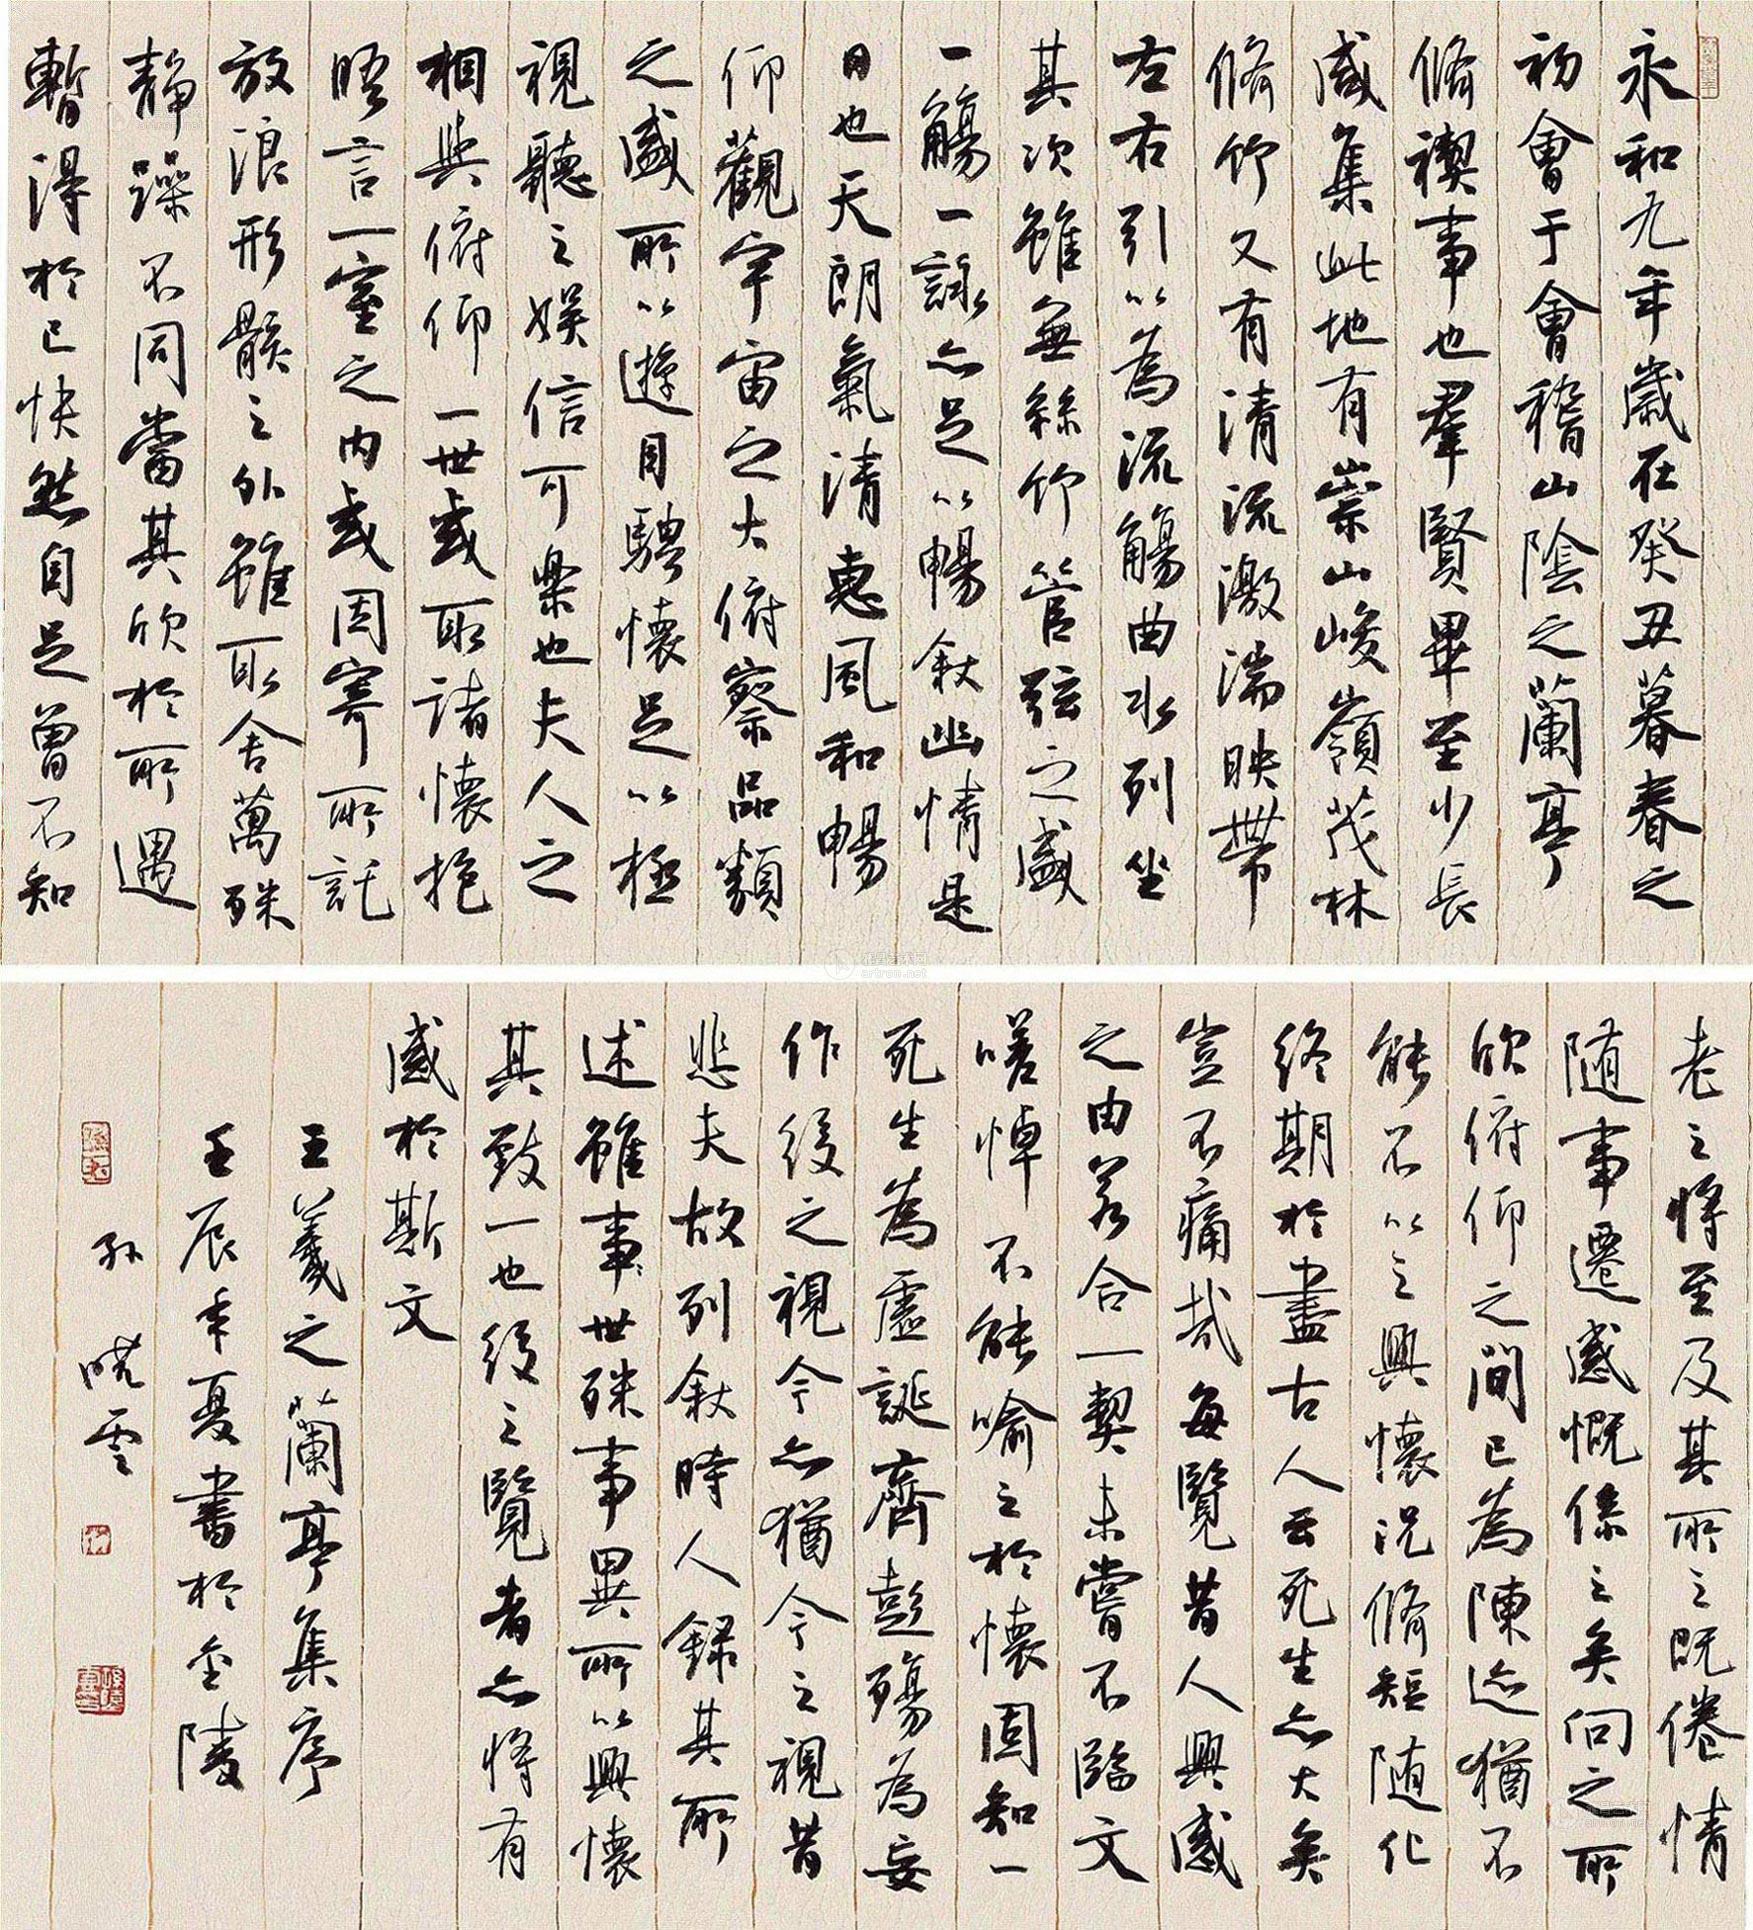 永和九年歲在癸丑暮春之
初會于會稽山陰之蘭亭
脩禊事也羣賢畢至少長
咸集此地有崇山峻嶺茂林
脩竹又有清流激湍映帶
左右引以為流觴曲水列坐
其次雖無絲竹管弦之盛
一觴一詠亦足以暢敘幽情是
日也天朗氣清惠風和暢
仰觀宇宙之大俯察品類
之盛所以遊目騁懷足以極
視聽之娛信可樂也夫人之
相與俯仰一世或取諸懷抱
晤言一室之內或因寄所託
放浪形骸之外雖取舍萬殊
靜躁不同當其欣於所遇
暫得於己快然自足曾不知
老之將至及其所之既倦情
隨事遷感慨係之矣向之所
欣俯仰之間已為陳迹猶不
能不以之興懷況脩短隨化
終期於盡古人云死生亦大矣
豈不痛哉每覽昔人興感
之由若合一契未嘗不臨文
嗟悼不能喻之於懷固知一
死生為虛誕齊彭殤為妄
作後之視今亦猶今之視昔
悲夫故列敘時人錄其所
述雖事世殊事異所以興懷
其致一也後之覽者亦將有
感於斯文
王羲之蘭亭集序
壬辰年夏書於金陵
孫曉雲